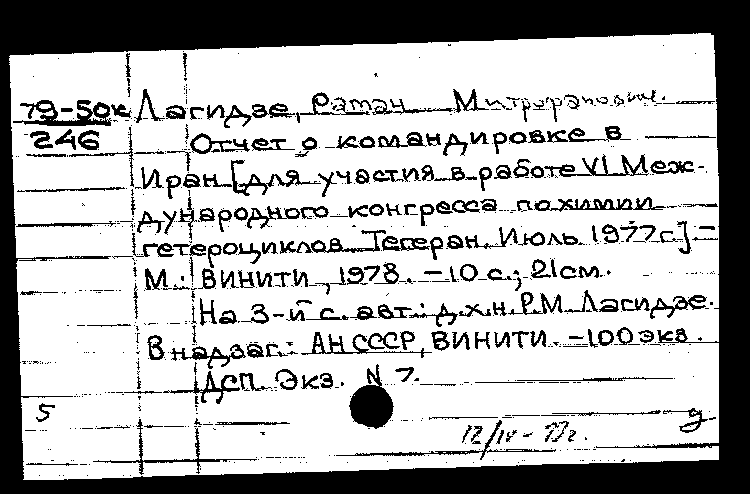 79-50к Лагидзе, Раман Митрофанович.
246 Отчет о командировке в
Иран [для участия в работе VI Меж-
дународного конгресса по химии
гетероциклов. Тегеран. Июль 1977г.].-
М.: ВИНИТИ, 1978. -10 с.; 21см.
На 3-й с. авт.: д.х.н. Р.М. Лагидзе.
В надзаг.: АН СССР, ВИНИТИ. -100 экз.
Дсп. Экз. N 7.
5
12/IV-79г. д